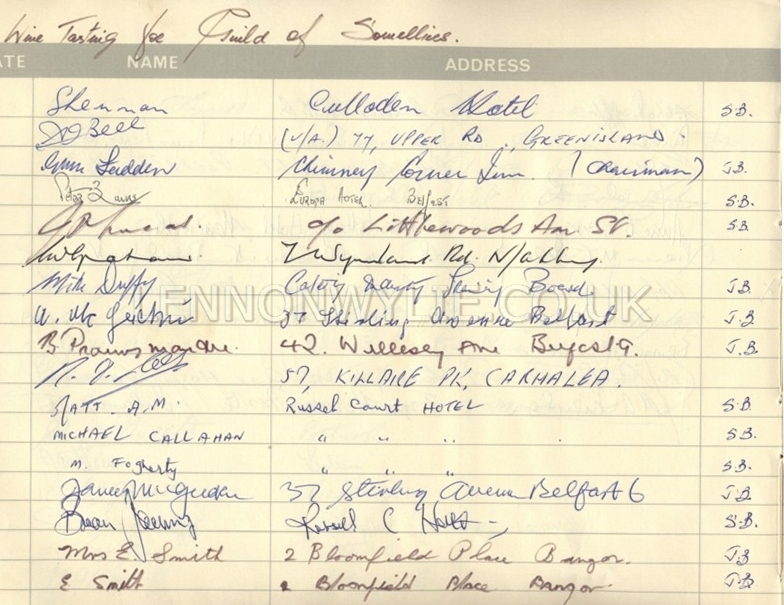 Wine Tasting for Guild of Somelliers.
ATE NAME ADDRESS
Shennan Culloden Hotel S.B.
Bell (U/A.) 77, UPPER RD., GREENISLAND. 
Chimney Corner Inn. (Chairman) J.B.
Peter EUROPA HOTEL. BELFAST S.B.
c/o Littlewoods Ann St. S.B.
Rd. N/abbey.
Mik Duffy Board J.B.
W. Mc 37 Stirling Avenue Belfast J.B
B. 42. Ave Belfast 9. J.B.
57, KILLAIRE PK, CARNALEA.
A.M. Russel Court HOTEL S.B.
MICHAEL CALLAHAN " " " . S.B.
M. Fogherty " " " S.B.
37 Stirling Avenue Belfast 6 J.B
Brian Russell C Hotel S.B.
Mrs E Smith 2 Bloomfield Place Bangor. J.B
E Smith 2 Bloomfield Place Bangor. J.B
LENNONWYLIE.CO.UK